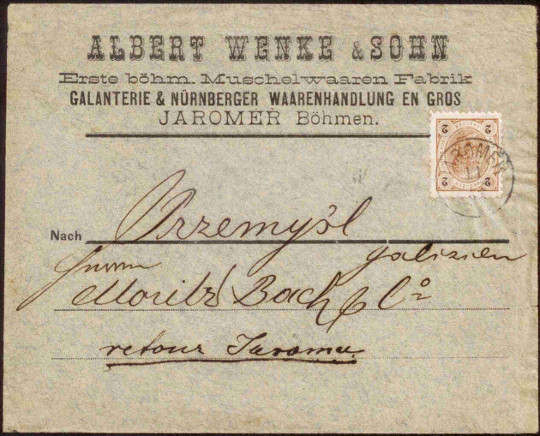 ALBERT WENKE & SOHN
Erste böhm. Muschelwaaren Fabrik
GALANTERIE & NÜRNBERGER WAARENHANDLUNG EN GROS
JAROMER Böhmen.
2 2
Nach Przemyśl
galizien
Moritz Bach & Co
retour Jaromer